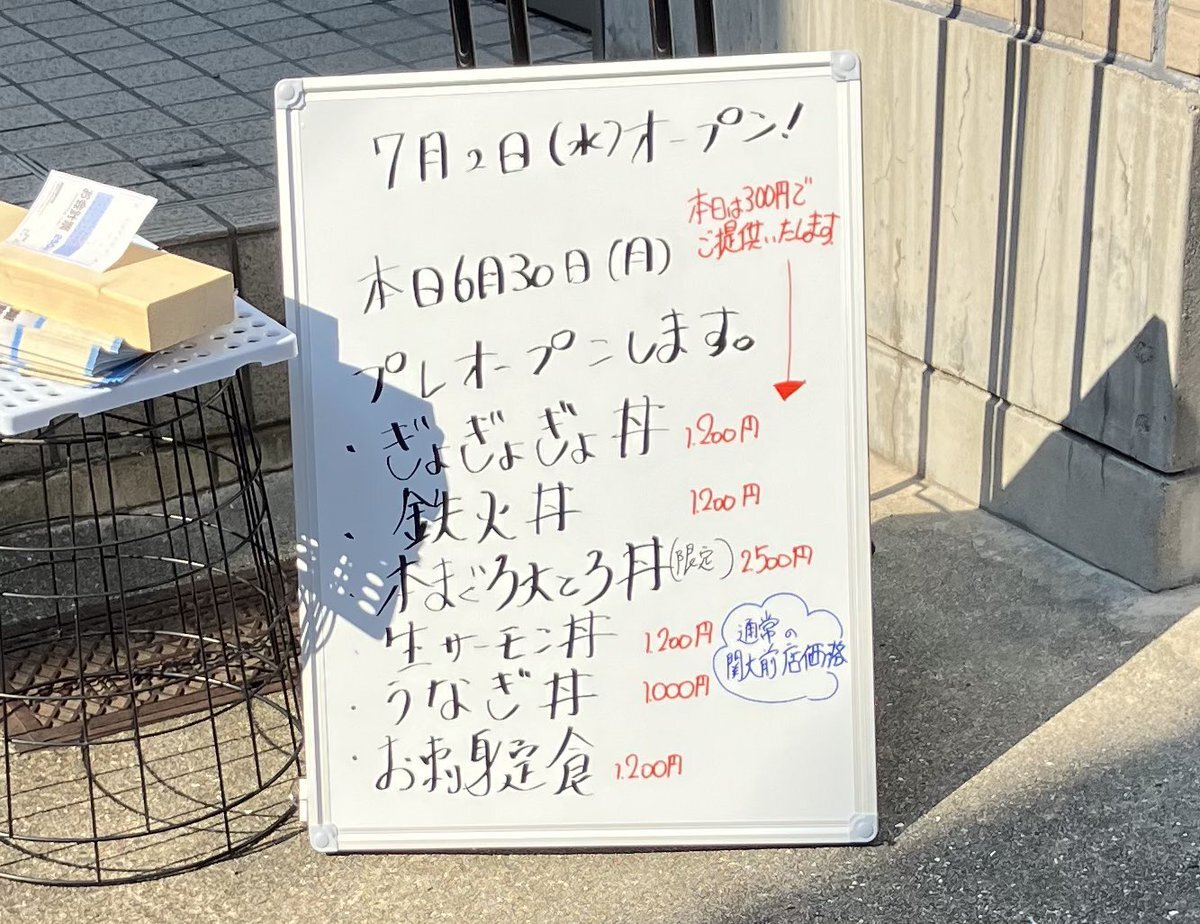 7月2日(水)オープン!
本日は300円で
ご提供いたします
本日6月30日(月)
プレオープンします。
・ぎょぎょぎょ丼 1.200円
・鉄火丼 1.200円
・本まぐろ大とろ丼(限定) 2500円
生サーモン丼 1.200円
通常の
関大前店価格
・うなぎ丼 1.000円
・お刺身定食 1.200円
お会計票